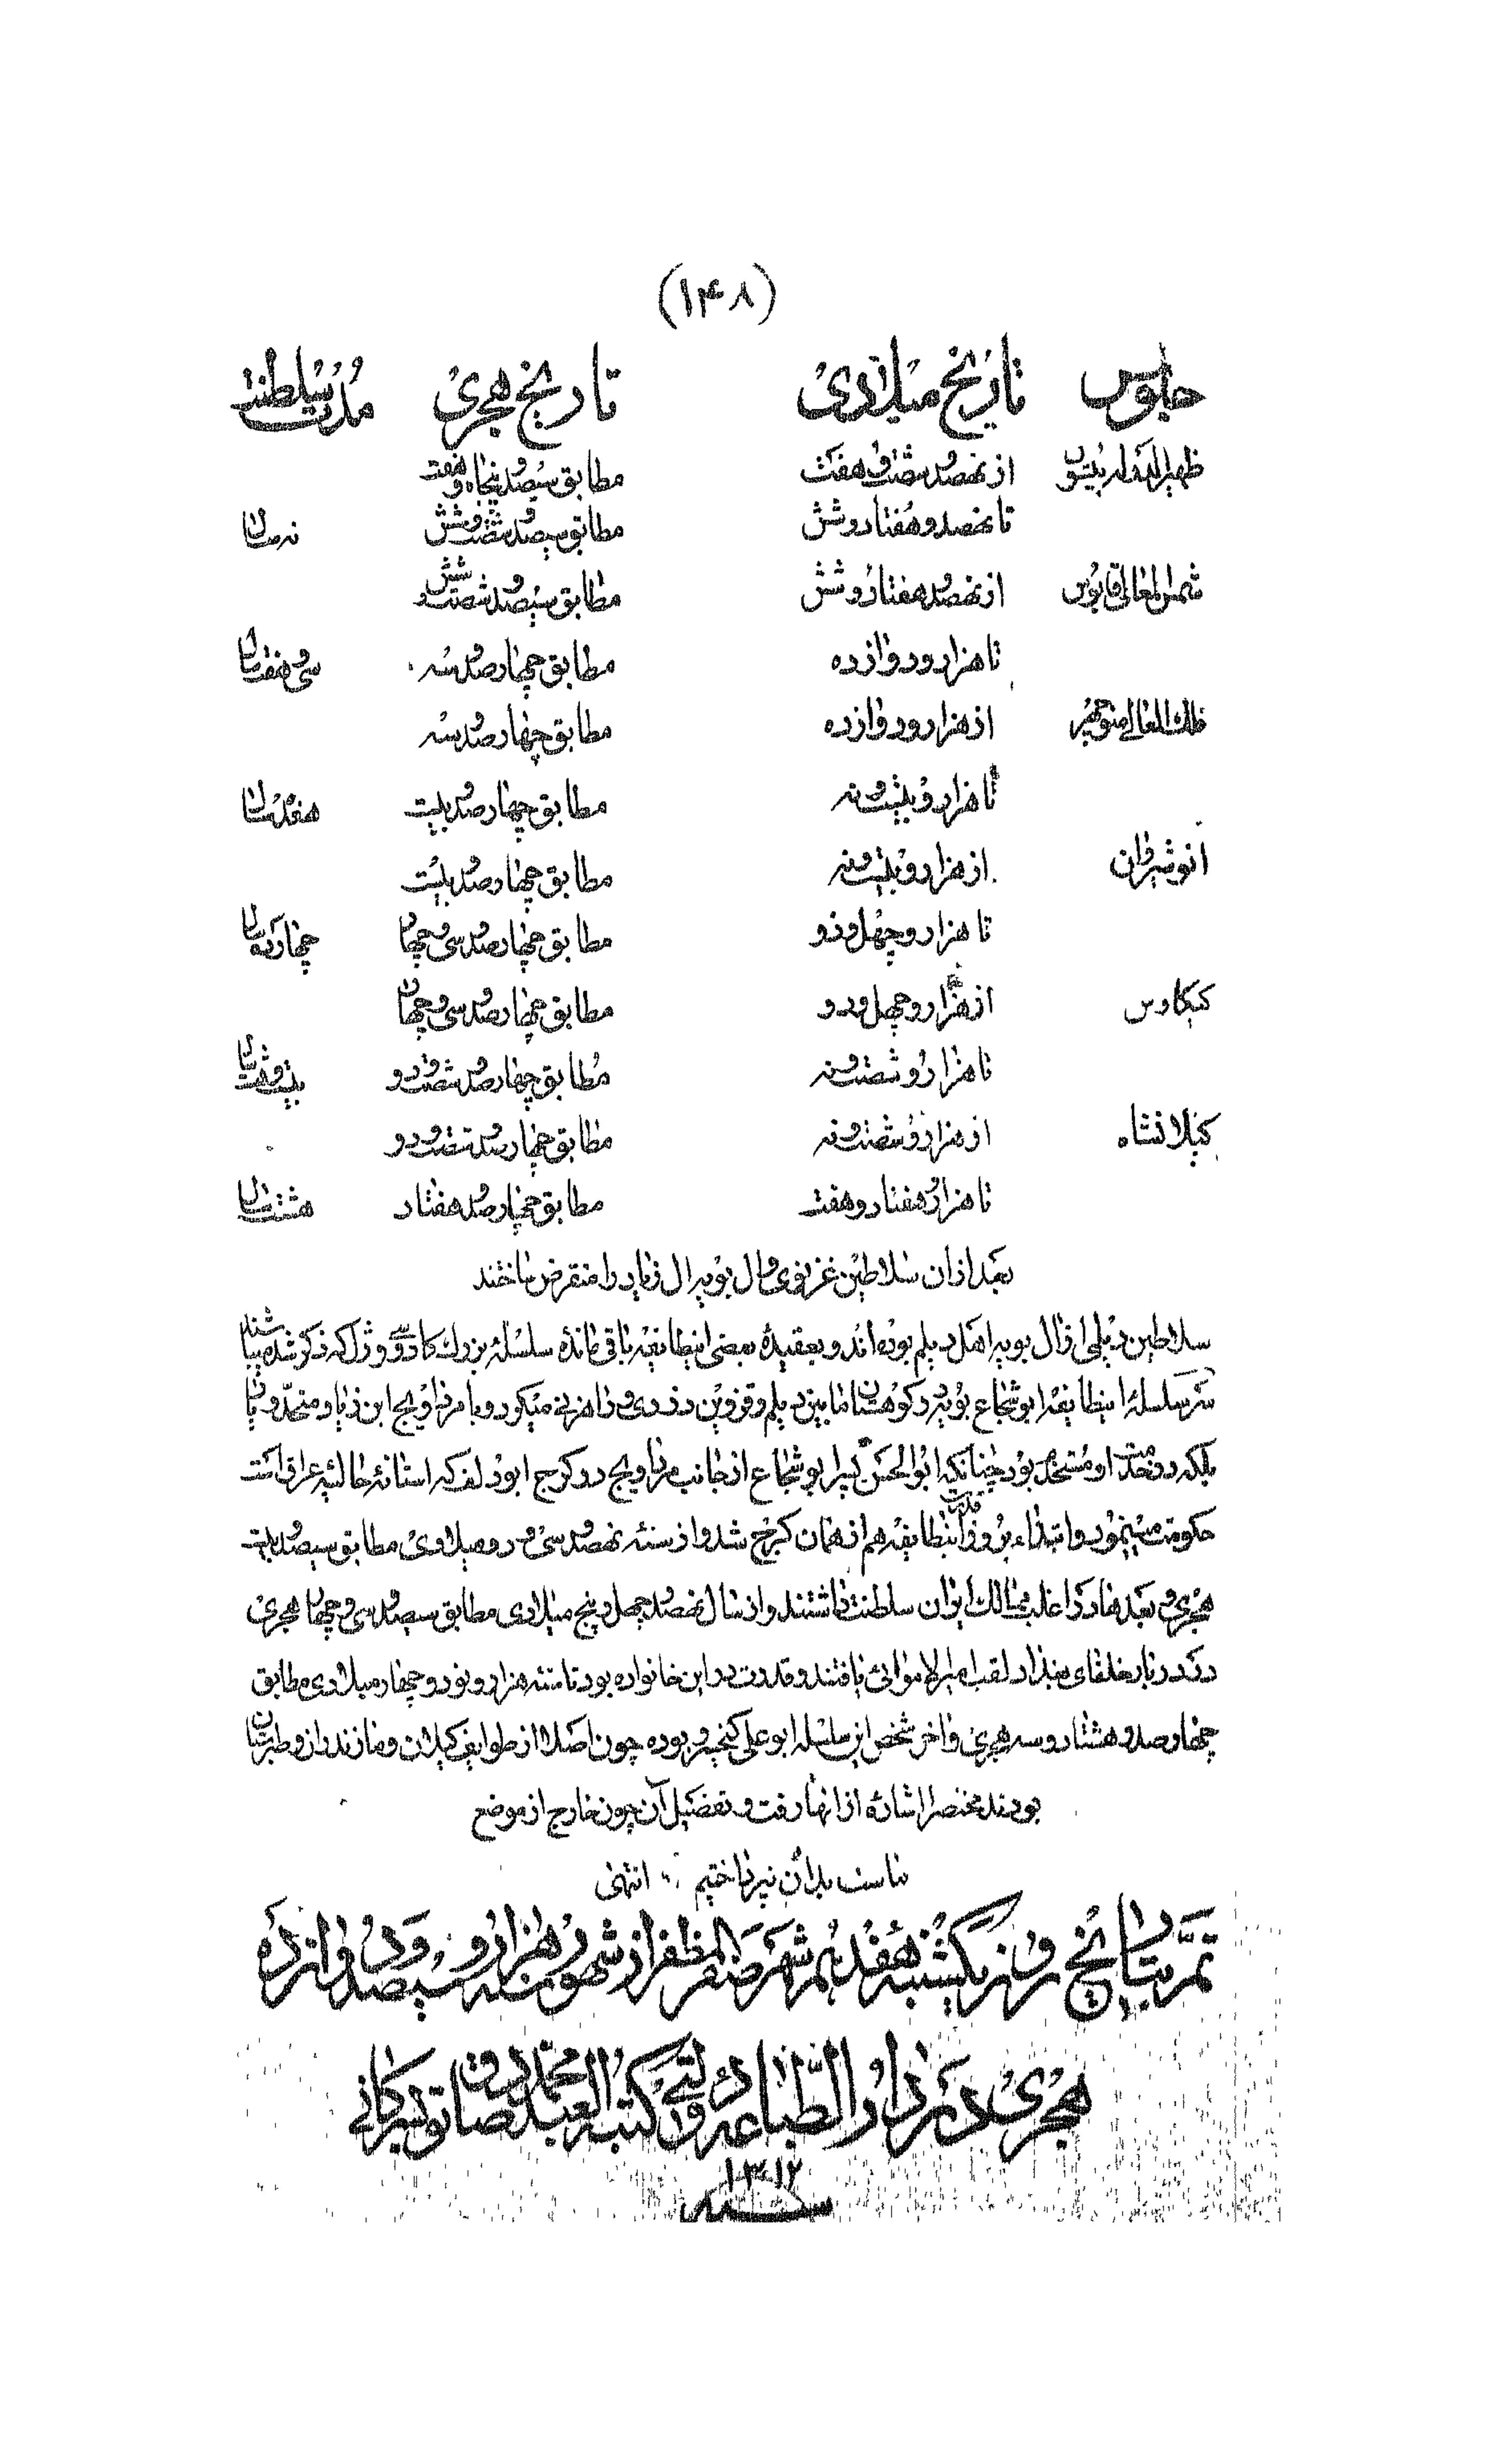 (۱۴۸)
جلوس تاریخ میلادی تاریخ هجری مدت سلطنت
ظهیرالدوله بیستون از نهصد و شصت و هفت مطابق سیصد و پنجاه و هفت
تا نهصد و هفتاد و شش مطابق سیصد و شصت و شش نه سال
شمس المعالی قابوس از نهصد و هفتاد و شش مطابق سیصد و شصت و شش
تا هزار و دوازده مطابق چهارصد و سه سی و هفت سال
فلك المعالی منوچهر از هزار و دوازده مطابق چهارصد و سه
تا هزار و بیست و نه مطابق چهارصد و بیست هفده سال
انوشیروان از هزار و بیست و نه مطابق چهارصد و بیست
تا هزار و چهل و دو مطابق چهارصد و سی و چهار چهارده سال
کیکاوس از هزار و چهل و دو مطابق چهارصد و سی و چهار
تا هزار و شصت و نه مطابق چهارصد و شصت و دو بیست و هشت سال
کیلانشاه از هزار و شصت و نه مطابق چهارصد و شصت و دو
تا هزار و هفتاد و هفت مطابق چهارصد و هفتاد هشت سال
بعد از آن سلاطین غزنوی و ال بویه ال زیار را منقرض ساختند
سلاطین دیلمی از ال بویه اهل دیلم بوده‌اند و بعقیدهٔ بعضی اینطایفه باقی ماندهٔ سلسلهٔ بزرك کادوسی و ژل که ذکر شد میباشند
سر سلسلهٔ اینطایفه ابوشجاع بویه در کوهستان مابین دیلم و قزوین دزدی و راهزنی میکرد و با مرداویج ابن زیاد متحد و یا
بلکه در خدمت او مستخدم بود چنانکه ابوالحسن پسر ابوشجاع از جانب مرداویج در کرج ابودلف که استانهٔ حالیه عراق است
حکومت مینمود و ابتداء بروز قدرت اینطایفه هم از همان کرج شد و از سنه نهصد و سی و دو میلادی مطابق سیصد و بیست
هجری و بعدها در اغلب ممالك ایران سلطنت داشتند و از سال نهصد و چهل و پنج میلادی مطابق سیصد و سی و چهار هجری
در دربار خلفای بغداد لقب امیرالامرائی یافتند و قدرت در این خانواده بود تا سنه هزار و نود و چهار میلادی مطابق
چهارصد و هشتاد و سه هجری و اخر شخص این سلسله ابو علی کیخسرو بوده چون اصلا از طوایف کیلان و مازندران و طبرستان
بودند مختصرا اشاره از انها رفت و تفضیل آن چون خارج از موضع
ماست بدان نپرداختیم انتهی
تمّ بتاریخ روز یکشنبه هفدهم شهر صفر المظفر از شهور سنه هزار و سیصد و دوازده
هجری در دارالطباعه دولتی کتبه العبد محمد صادق تویسرکانی
سنه ۱۳۱۲